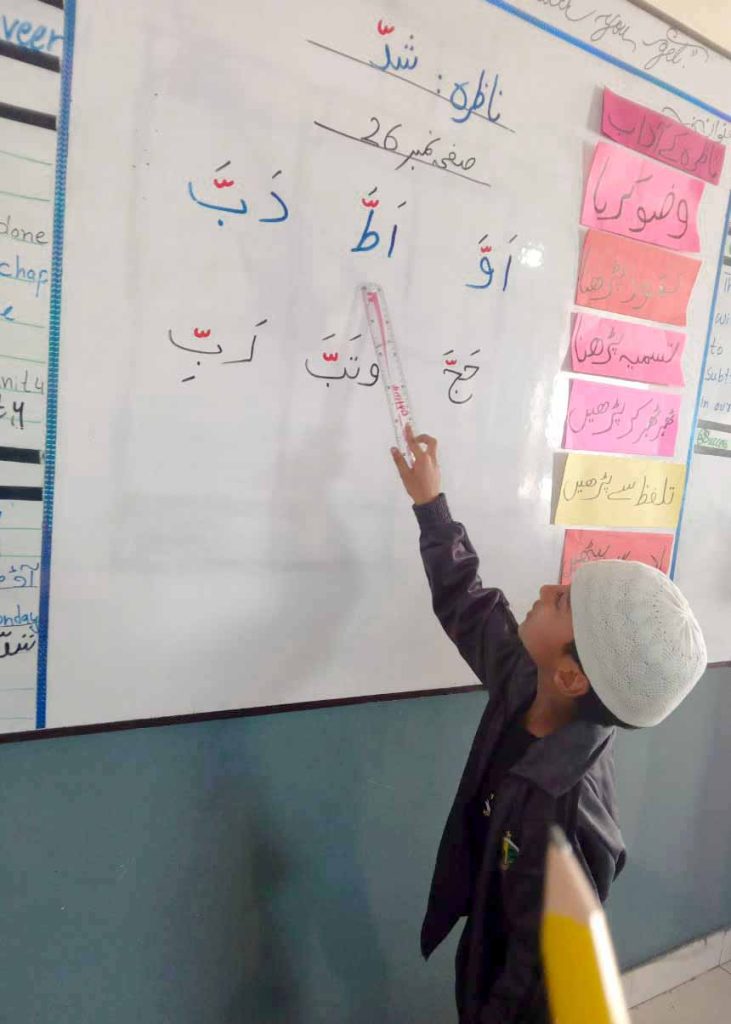 you get."
ناظرہ: شدّ
صفحہ نمبر 26
اَوَّ اَطَّ دَبَّ
حَجَّ وَتَبَّ رَبِّ
عنوان:
ناظرہ کے آداب
وضو کرنا
تعوذ پڑھنا
تسمیہ پڑھنا
ٹھہر ٹھہر کر پڑھیں
تلفظ سے پڑھیں
veer
done
chap
e
nity
ty
onday
شدّ
to
Subt
in our